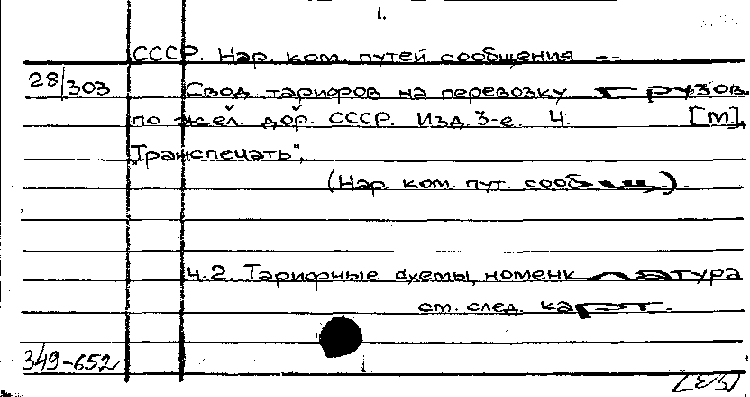 1.
СССР. Нар. ком. путей сообщения –
28/303 Свод тарифов на перевозку грузов
по жел. дор. СССР. Изд. 3-е. Ч. [М],
"Транспечать",
(Нар. ком. пут. сообщ.)
Ч.2. Тарифные схемы, номенклатура
см. след. карт.
349-652